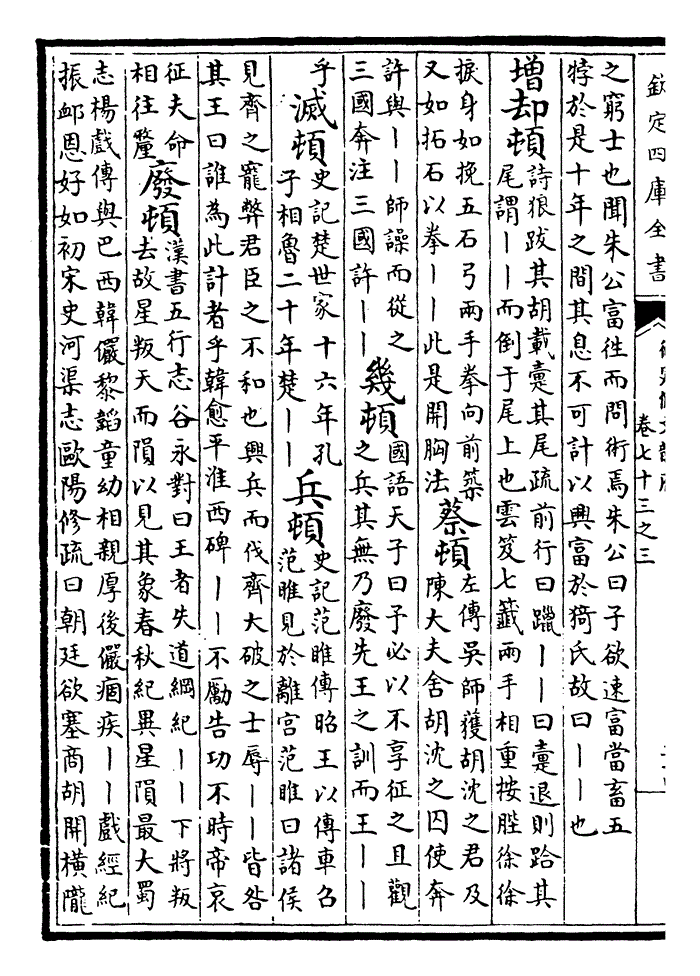 欽定四庫全書
卷七十三之三
之窮士也聞朱公富徃而問術焉朱公曰子欲速富當畜五
牸於是十年之間其息不可計以興富於猗氏故曰丨丨也
增却頓
詩狼跋其胡載疐其尾疏前行曰躐丨丨曰疐退則跲其
尾謂丨丨而倒于尾上也雲笈七籤兩手相重按䏶徐徐
捩身如挽五石弓兩手拳向前築
又如拓石以拳丨丨此是開胸法
蔡頓
左傳吳師獲胡沈之君及
陳大夫舍胡沈之囚使奔
許與丨丨師譟而從之
三國奔注三國許丨丨
幾頓
國語天子曰予必以不享征之且觀
之兵其無乃廢先王之訓而王丨丨
乎
滅頓
史記楚世家 十六年孔
子相魯二十年楚丨丨
兵頓
史記范睢傳昭王以傳車召
范睢見於離宫范睢曰諸侯
見齊之寵弊君臣之不和也興兵而伐齊大破之士辱丨丨皆咎
其王曰誰為此計者乎韓愈平淮西碑丨丨不勵告功不時帝哀
征夫命
相往釐
廢頓
漢書五行志谷永對曰王者失道綱紀丨丨下將叛
去故星叛天而隕以見其象春秋紀異星隕最大蜀
志楊戲傳與巴西韓儼黎韜童幼相親厚後儼痼疾丨丨戲經紀
振䘏恩好如初宋史河渠志歐陽修疏曰朝廷欲塞商胡開橫隴